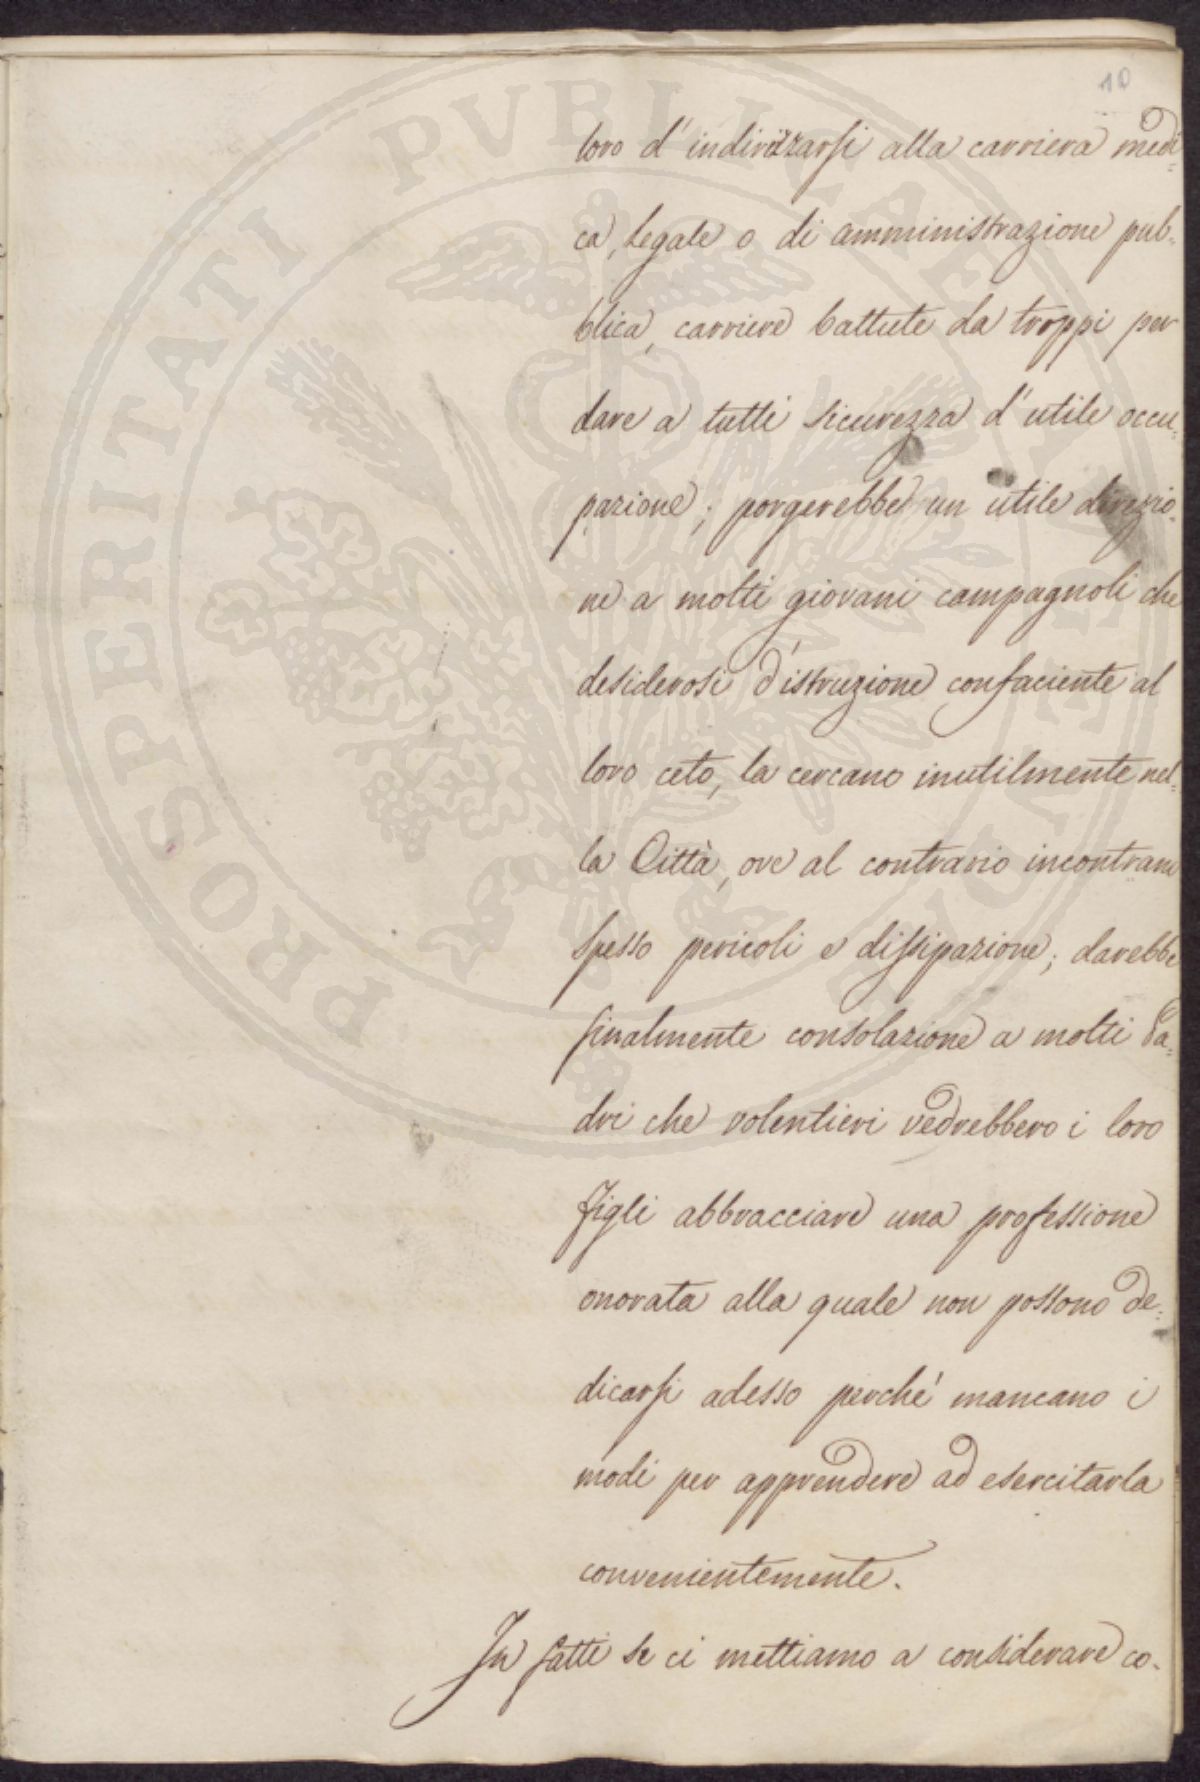 10
loro d'indirizzarsi alla carriera medi=
ca, legale o di amministrazione pub=
blica, carriere battute da troppi per
dare a tutti sicurezza d'utile occu=
pazione; porgerebbe un utile direzio=
ne a molti giovani campagnoli che
desiderosi d'istruzione confaciente al
loro ceto, la cercano inutilmente nel=
la Città, ove al contrario incontrano
spesso pericoli e dissipazione; darebbe
finalmente consolazione a molti Pa=
dri che volentieri vedrebbero i loro
figli abbracciare una professione
onorata alla quale non possono de=
dicarsi adesso perché mancano i
modi per apprendere ad esercitarla
convenientemente.
In fatti se ci mettiamo a considerare co=
PROSPERITATI PUBLICAE